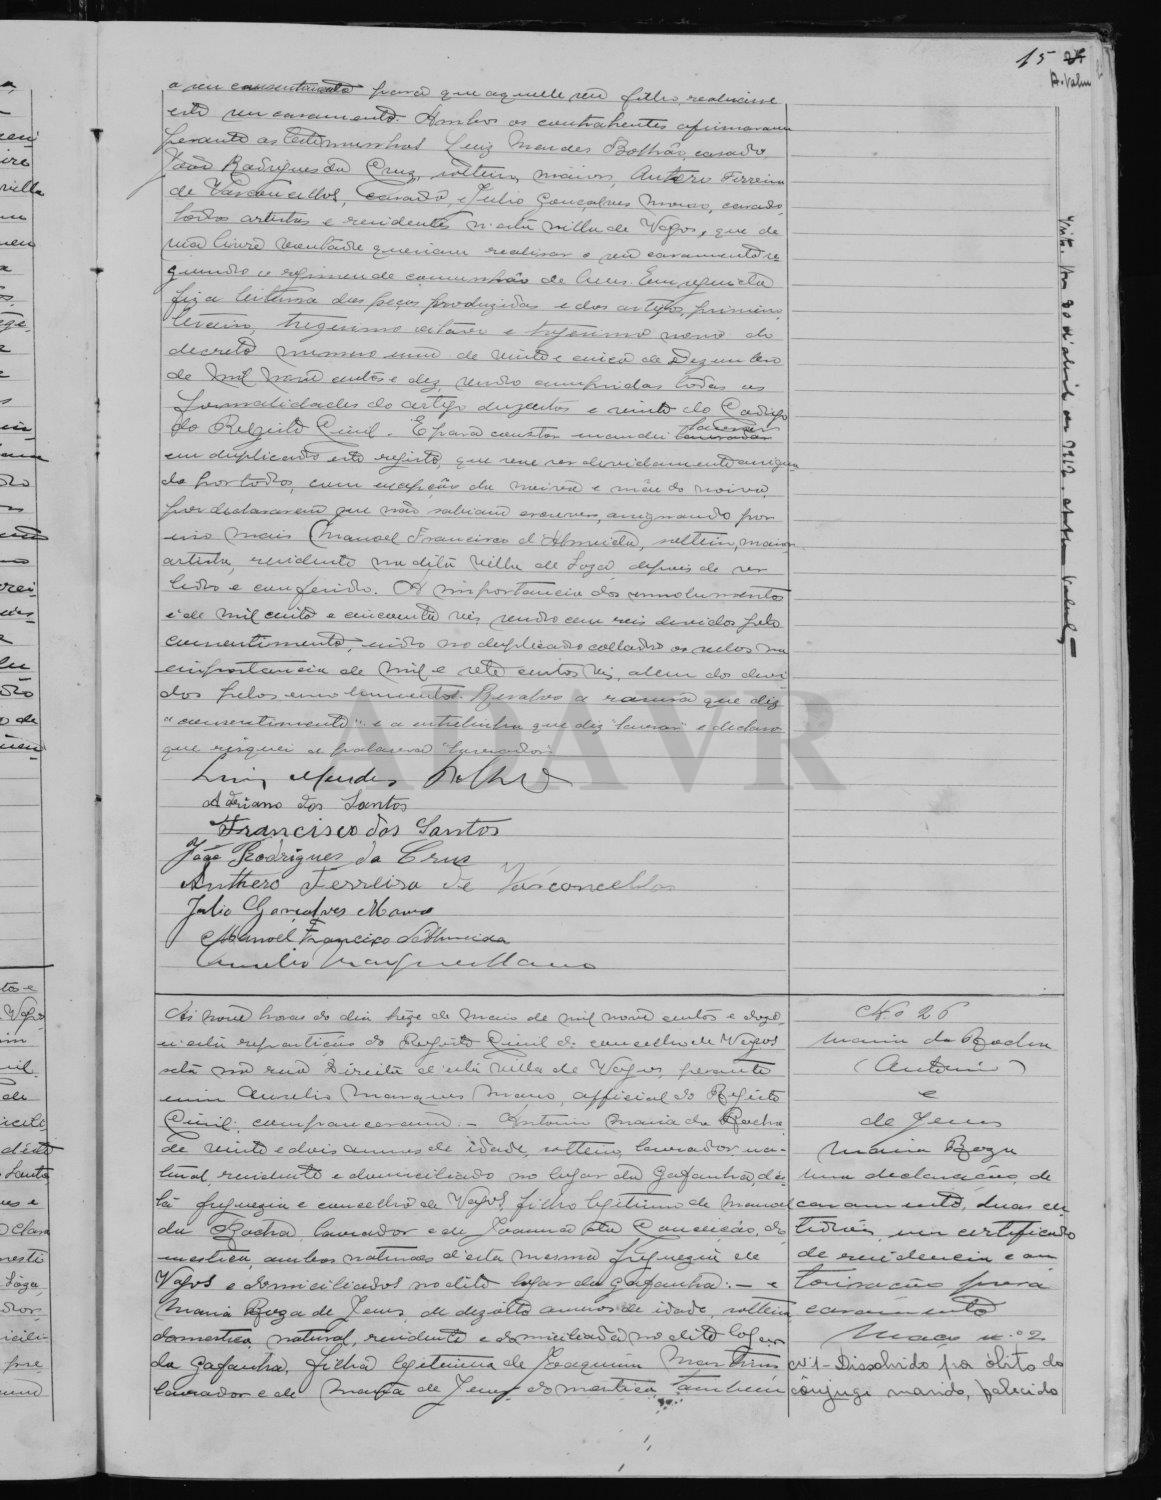 15
o seu consentimento para que aquelle seu filho realisasse
este seu casamento. Ambos os contrahentes afirmaram
perante as testimunhas Luiz Mendes Bolhão, casado,
João Rodrigues da Cruz, solteiro, maior, Anthero Ferreira
de Vasconcellos, casado, e Julio Gonçalves Mano, casado,
todos artistas e residentes n'esta villa de Vagos, que de
sua livre vontade queriam realisar o seu casamento se
guindo o regimen de comunhão de bens. Em seguida
fiz a leitura das peças produzidas e dos artigos primeiro,
terceiro, trigesimo oitavo e trigesimo nono do
decreto numero um de vinte e cinco de Dezembro
de mil nove centos e dez, sendo cumpridas todas as
formalidades do artigo duzentos e vinte do Codigo
do Registo Civil. E para constar mandei lavrar
em duplicado este registo, que vae ser devidamente assigna
do por todos, com excepção da noiva e mãe do noivo,
por declararem que não sabiam escrever, assignando por
isso mais Manoel Francisco d'Almeida, solteiro, maior
artista, residente na dita villa de Soza depois de ser
lido e conferido. A importancia dos emolumentos
é de mil cento e cincoenta reis sendo cem reis devidos pelo
consentimento, indo no duplicado collados os sellos na
importancia de mil e sete centos reis, alem dos devi
dos pelos emolumentos. Resalvo a rasura que diz
"consentimento" e a entrelinha que diz "lavrar" e declaro
que risquei a palavra "lavrados".
Luiz Mendes Bolhão
Adriano dos Santos
Francisco dos Santos
João Rodrigues da Cruz
Anthero Ferreira de Vasconcellos
Julio Gonçalves Mano
Manoel Francisco d'Almeida
Aurelio Marques Mano
ADAVR
Ás nove horas do dia treze de Maio de mil nove centos e doze,
n'esta repartição do Registo Civil do concelho de Vagos
sita na rua Direita d'esta villa de Vagos, perante
mim Aurelio Marques Mano, official do Registo
Civil, compareceram: – Antonio Maria da Rocha
de vinte e dois annos de idade, solteiro, lavrador na-
tural, residente e domiciliado no logar da Gafanha, d'es
ta freguezia e concelho de Vagos, filho legitimo de Manoel
da Rocha, lavrador e de Joanna da Conceição, do
mestica, ambos naturaes d'esta mesma freguezia de
Vagos e domiciliados no dito logar da Gafanha: – e
Maria Roza de Jesus, de dezoito annos de idade, solteira
domestica, natural, residente e domiciliada no dito logar
da Gafanha, filha legitima de Joaquim Martins
lavrador e de Maria de Jesus, domestica, tambem
No 26
Maria da Rocha
(Antonio)
e
de Jesus
Maria Roza
Uma declaração de
casamento, duas cer
tidões, um certificado
de residencia e au
torisação para
casamento
Maço n.º 2
Nº 1 - Dissolvido por óbito do
cônjuge marido, falecido